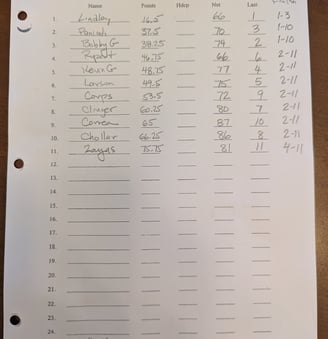 Name Points Hdcp Net Last
1. Lindley 16.5 66 1 1-3
2. 37.5 70 3 1-10
3. Bobby G 38.25 74 2 1-10
4. 46.75 66 6 2-11
5. Kevin G 48.75 77 4 2-11
6. Larson 49.5 75 5 2-11
7. Corps 53.5 72 9 2-11
8. Oliver 60.25 80 7 2-11
9. Correa 65 87 10 2-11
10. Chollar 66.25 86 8 2-11
11. Zayas 75.75 81 11 4-11
12.
13.
14.
15.
16.
17.
18.
19.
20.
21.
22.
23.
24.